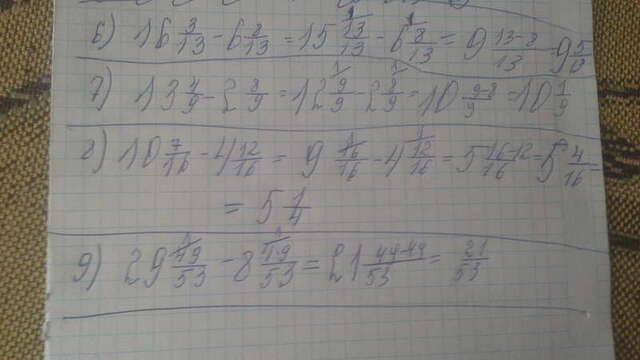 6) 16 3/13 - 6 8/13 = 15 13/13 - 6 8/13 = 9 13-8/13 9 5/13
7) 13 4/9 - 2 8/9 = 12 9/9 - 2 8/9 = 10 9-8/9 = 10 1/9
8) 10 7/16 - 4 12/16 = 9 16/16 - 4 12/16 = 5 16-12/16 = 5 4/16 =
= 5 1/4
9) 29 49/53 - 8 49/53 = 21 49-49/53 = 21/53